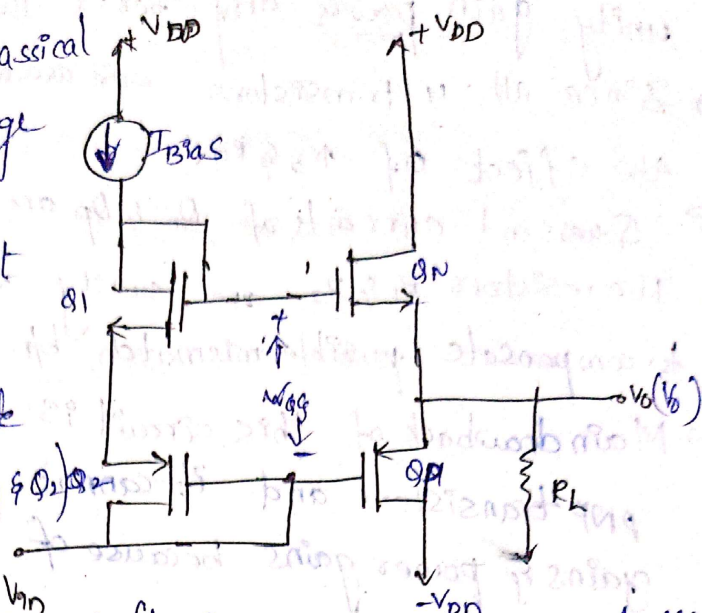 assical
ge
t
+ VDD
+ VDD
IBIAS
Q1
QN
+
VGG
-
vo(Vo)
& Q2) Q2
QP
RL
VIN
-VDD